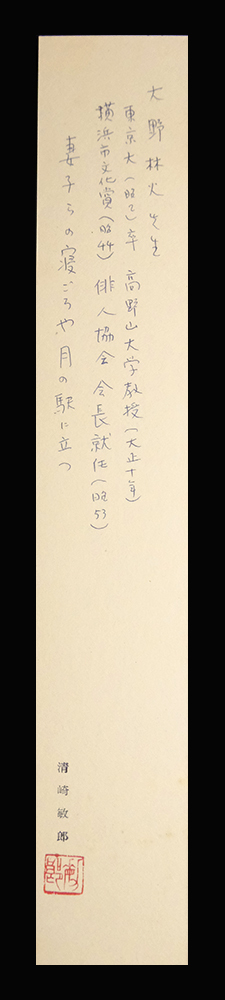 大野林火先生
東京大(昭2)卒 高野山大学教授(大正十年)
横浜市文化賞(昭44) 俳人協会会長就任(昭53)
妻子らの寝ごろや月の駅に立つ
清崎敏郎